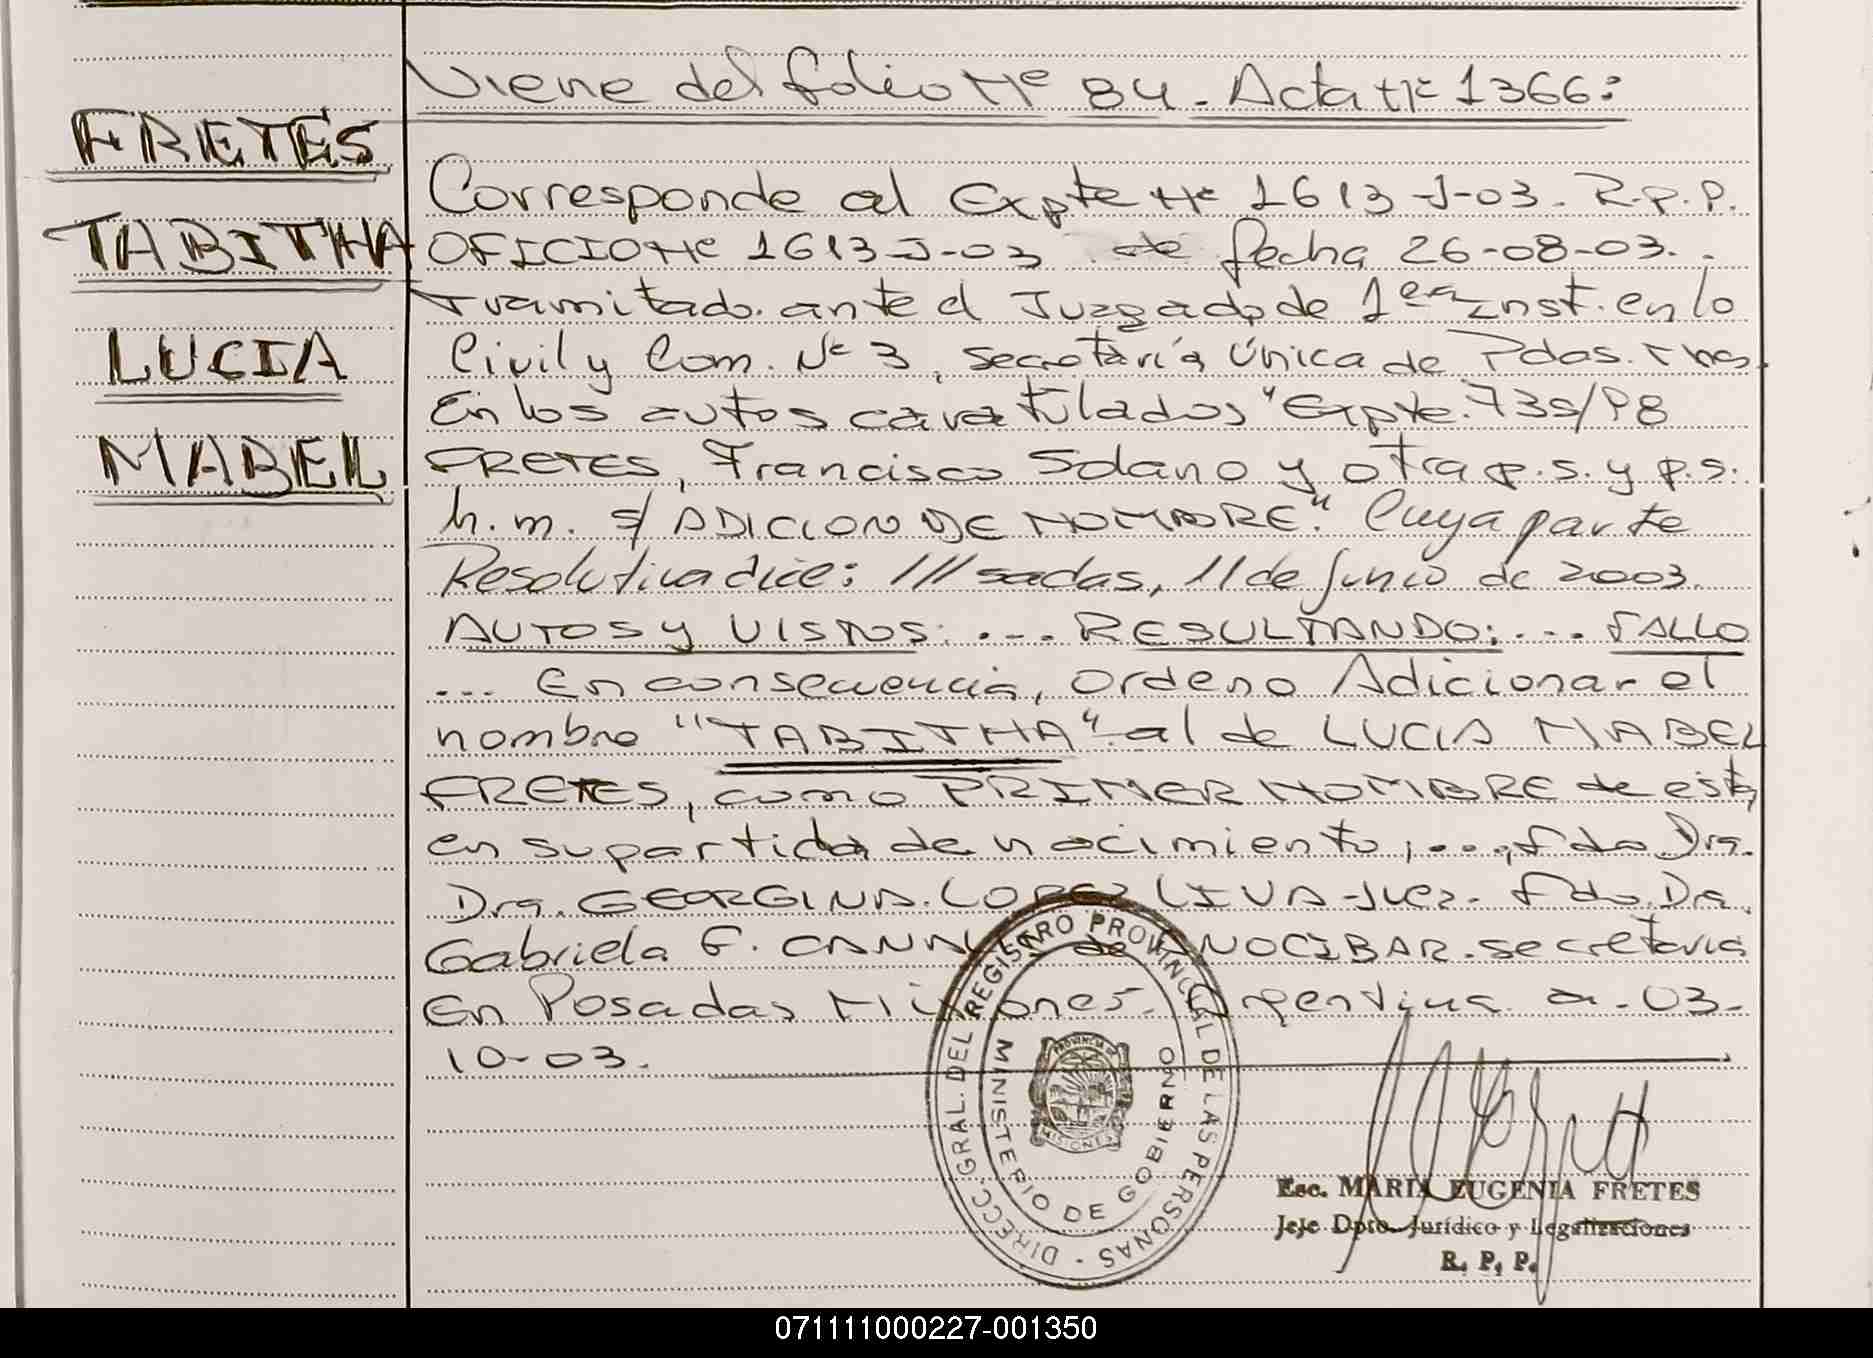 Viene del folio Nº 84. Acta Nº 1366:
FRETES
TABITHA
LUCIA
MABEL
Corresponde al Expte Nº 1613-J-03. R.P.P.
OFICIO Nº 1613-J-03 de fecha 26-08-03.
Tramitado ante el Juzgado de 1era Inst. en lo
Civil y Com. Nº 3, secretaría Única de Pdas. Mnes.
En los autos caratulados "Expte. 735/98
FRETES, Francisco Solano y otra p.s. y p.s.
h.m. s/ ADICION DE NOMBRE". Cuya parte
Resolutiva dice: ///sadas, 11 de junio de 2003.
AUTOS y VISTOS: ... RESULTANDO: ... FALLO
... En consecuencia, Ordeno Adicionar el
nombre "TABITHA" al de LUCIA MABEL
FRETES, como PRIMER NOMBRE de esta,
en su partida de nacimiento, ..., fdo Dra.
Dra. GEORGINA LOPEZ LIVA-Juez. fdo. Dra.
Gabriela F. CANAL de ANOCIBAR. secretaria
En Posadas Misiones. Argentina a. 03-
10-03.
DIRECC. GRAL. DEL REGISTRO PROVINCIAL DE LAS PERSONAS
MINISTERIO DE GOBIERNO
PROVINCIA DE
MISIONES
Esc. MARIA EUGENIA FRETES
Jefe Dpto. Jurídico y Legalizaciones
R. P. P.
071111000227-001350